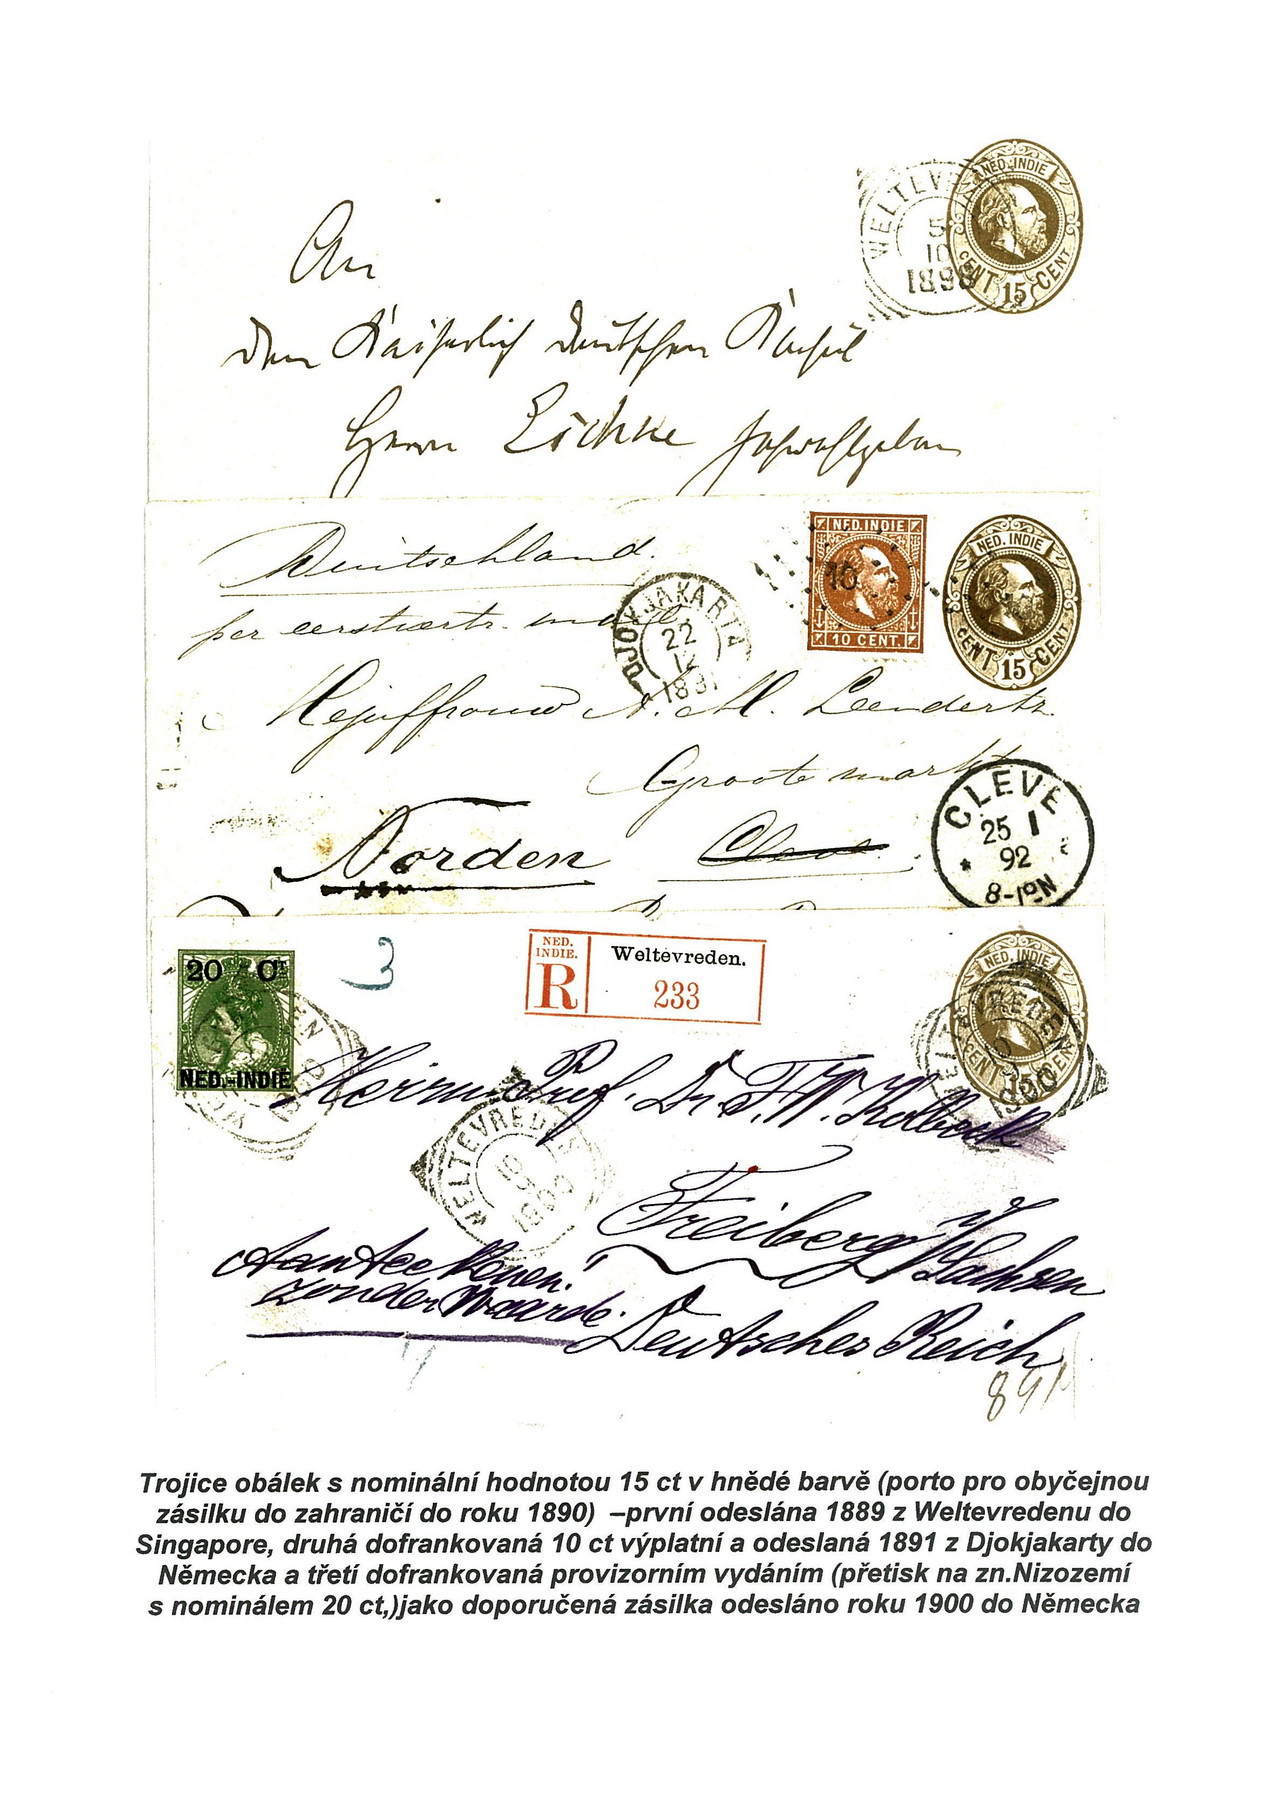 NED. INDIE
CENT 15 CENT
WELTEV
5
10
1898
An
den Kaiserlich deutschen Konsul
Herrn Eschke Hochwohlgeboren
NED. INDIE
10
10 CENT.
NED. INDIE
CENT 15 CENT
Deutschland
per eerstvertr. mail
DJOKJAKARTA
22
12
1891
Mejuffrouw A. M. Leendertz
Groote markt
Norden Cleve
CLEVE
25 1
92
8-10N
20 CT
NED.-INDIË
3
NED.
INDIE.
R
Weltevreden.
233
NED. INDIE
CENT 15 CENT
1900
Herrn Prof. Dr. F. W.
WELTEVREDEN
10
1900
Freiberg i/Sachsen
Aanteekenen!
zonder Waarde.
Deutsches Reich
891
Trojice obálek s nominální hodnotou 15 ct v hnědé barvě (porto pro obyčejnou
zásilku do zahraničí do roku 1890) –první odeslána 1889 z Weltevredenu do
Singapore, druhá dofrankovaná 10 ct výplatní a odeslaná 1891 z Djokjakarty do
Německa a třetí dofrankovaná provizorním vydáním (přetisk na zn.Nizozemí
s nominálem 20 ct,)jako doporučená zásilka odesláno roku 1900 do Německa